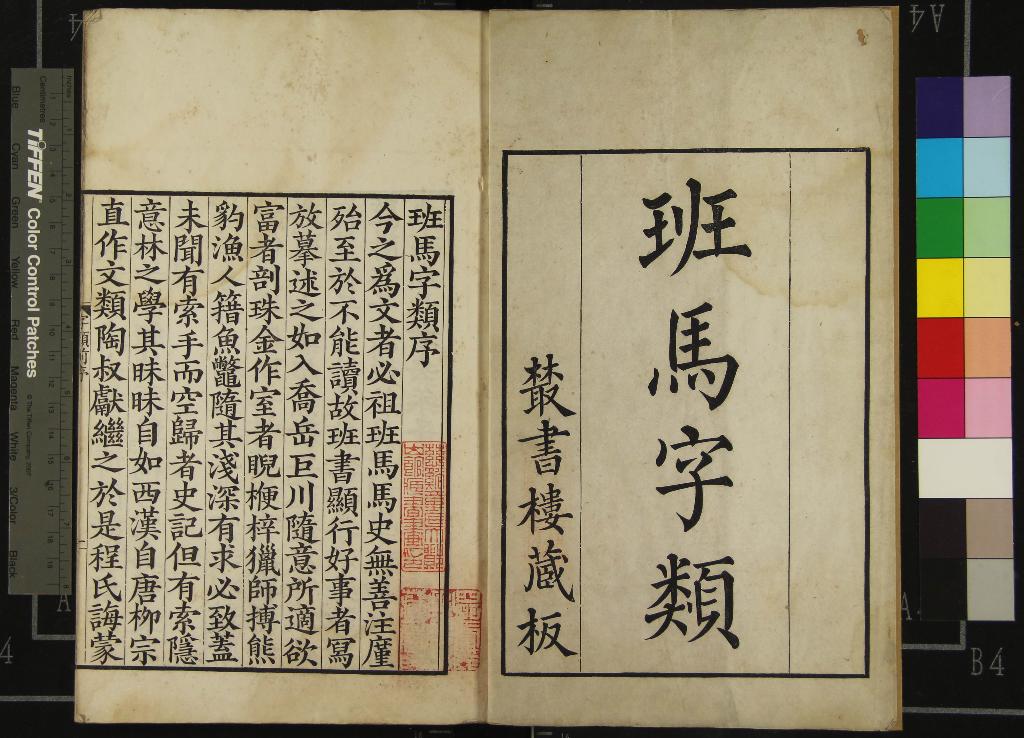 班馬字類
叢書樓蔵板
班馬字類序
今之爲文者必祖班馬馬史無善注廑
殆至於不能讀故班書顯行好事者冩
放摹述之如入喬岳巨川隨意所適欲
富者剖珠金作室者睨楩梓獵師搏熊
豹漁人籍魚鼈隨其淺深有求必致蓋
未聞有索手而空歸者史記但有索隱
意林之學其昧昧自如西漢自唐柳宗
直作文類陶叔獻繼之於是程氏誨蒙
TIFFEN Color Control Patches
© The Tiffen Company, 2007
Centimetres
Inches
Blue
Cyan
Green
Yellow
Red
Magenta
White
3/Color
Black
A4
B4